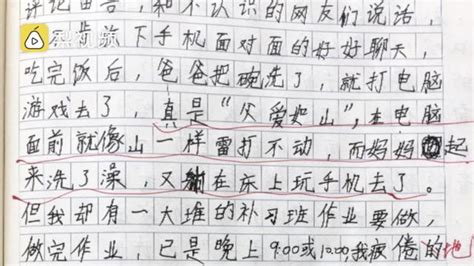 评论留言，和不认识的网友们说话，
放下手机面对面的好好聊天，
吃完饭后，爸爸把碗洗了，就打电脑
游戏去了，真是“父爱如山”，在电脑
面前就像山一样雷打不动，而妈妈起
来洗了澡，又在床上玩手机去了。
但我却有一大堆的补习班作业要做，
做完作业，已是晚上9:00或10:00我疲倦的地